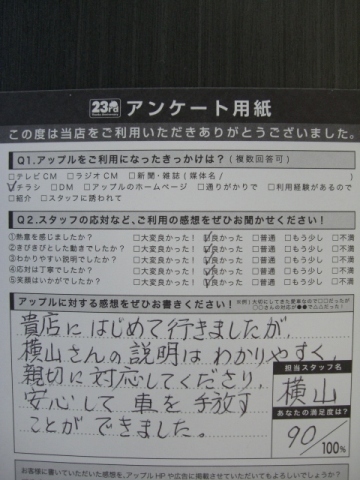 23 アンケート用紙
この度は当店をご利用いただきありがとうございました。
Q1.アップルをご利用になったきっかけは?(複数回答可)
□テレビCM □ラジオCM □新聞・雑誌(媒体名/
□チラシ □DM □アップルのホームページ □通りがかりで □利用経験があるので
□紹介 □スタッフに誘われて
Q2.スタッフの応対など、ご利用の感想をぜひお聞かせください!
①熱意を感じましたか? □大変良かった! □良かった □普通 □もう少し □不満
②きびきびとした動きでしたか? □大変良かった! □良かった □普通 □もう少し □不満
③わかりやすい説明でしたか? □大変良かった! □良かった □普通 □もう少し □不満
④応対は丁寧でしたか? □大変良かった! □良かった □普通 □もう少し □不満
⑤笑顔はいかがでしたか? □大変良かった! □良かった □普通 □もう少し □不満
アップルに対する感想をぜひお書きください!
貴店にはじめて行きましたが、
横山さんの説明はわかりやすく、
親切に対応してくださり、
安心して車を手放す
ことができました。
担当スタッフ名
横山
あなたの満足度は?
90/100%
お客様に書いていただいた感想を、アップルHPや広告に掲載させていただいてもよろしいでしょうか?